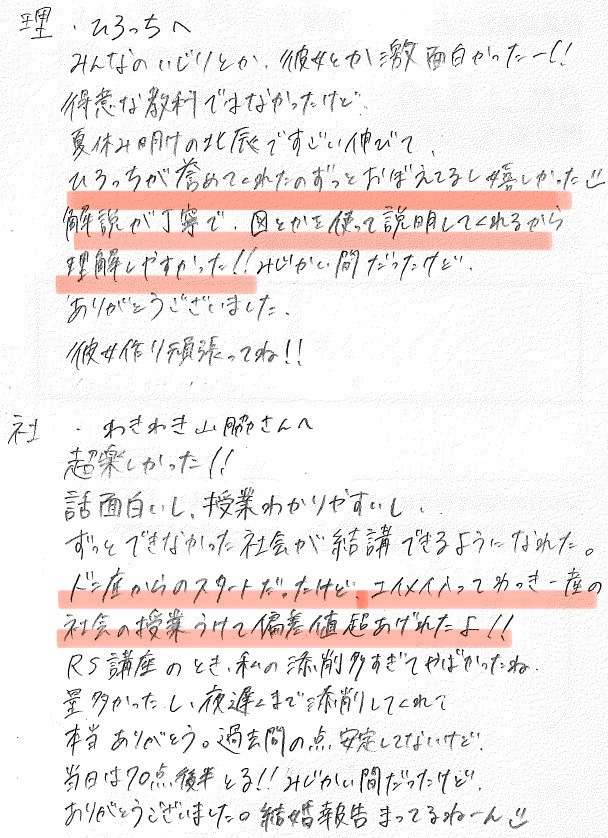 理・ひろっちへ
みんなのいじりとか、彼女とか激面白かったー!!
得意な教科ではなかったけど、
夏休み明けの北辰ですごい伸びて、
ひろっちが誉めてくれたのずっとおぼえてるし嬉しかった
解説が丁寧で、図とかを使って説明してくれるから
理解しやすかった!!みじかい間だったけど、
ありがとうございました。
彼女作り頑張ってね!!
社・わきわき山脇さんへ
超楽しかった!!
話面白いし、授業わかりやすいし、、
ずっとできなかった社会が結講できるようになれた。
ドン底からのスタートだったけど、エイメイ入ってわっきー産の
社会の授業うけて偏差値超あげれたよ!!
RS講座のとき、私の添削多すぎてやばかったね、
量多かったし、夜遅くまで添削してくれて
本当ありがとう。過去問の点安定してないけど、
当日は70点後半とる!!みじかい間だったけど、
ありがとうございました。結婚報告まってるねーん